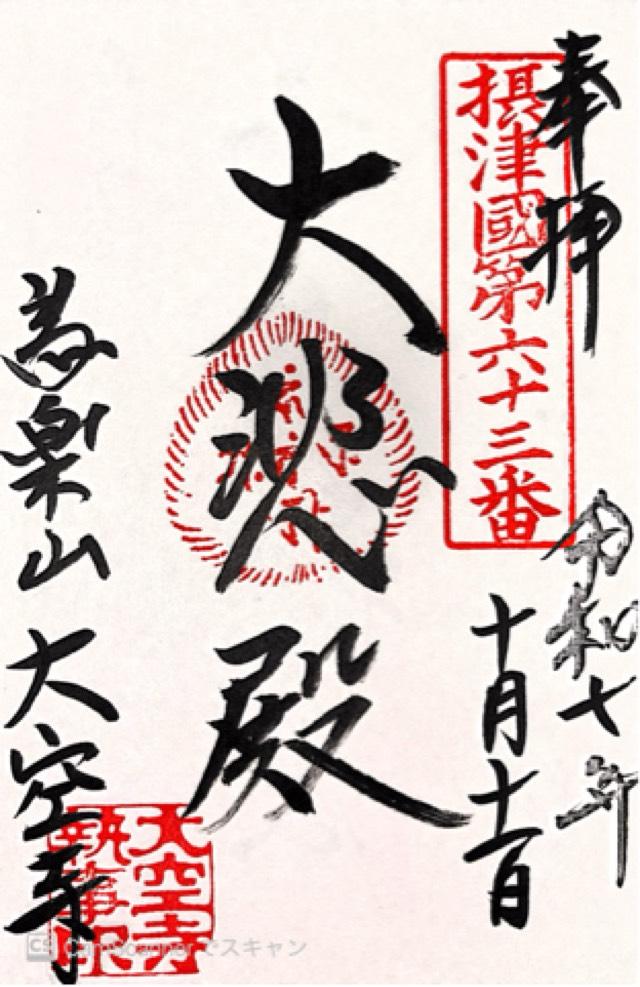 奉拝
摂津國第六十三番
令和七年
十月十一日
大悲殿
楽山 大空寺
大空寺
CS CamScanner でスキャン